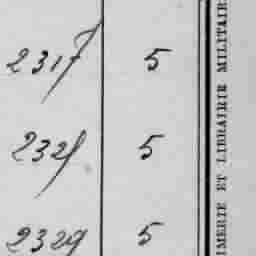 2317 5
2328 5
2329 5
IMERIE ET LIBRAIRIE MILITAIR